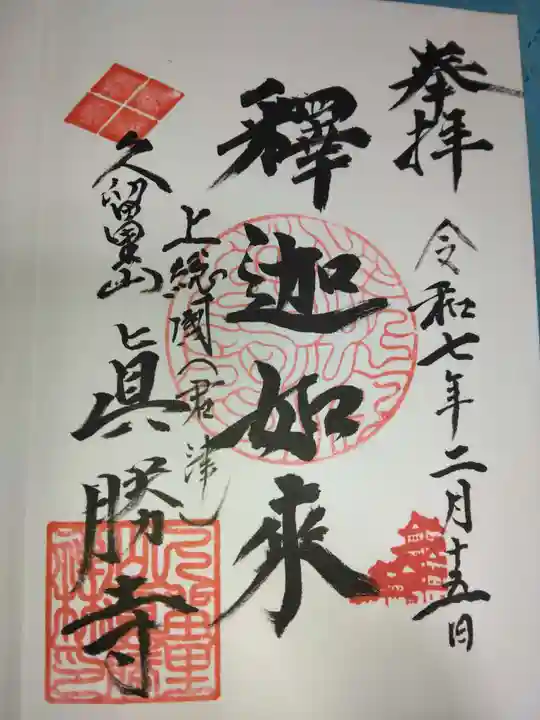 奉拝
令和七年二月十五日
釋迦如來
上総國(君津)
久留里山
真勝寺